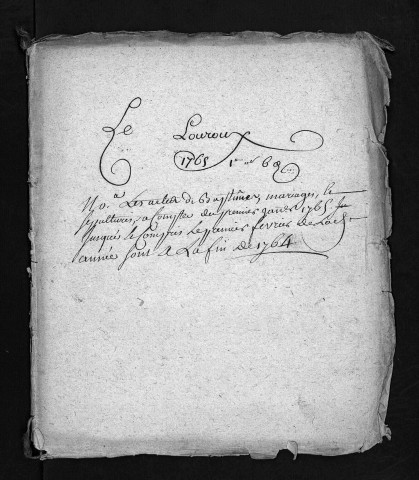 Le Louroux
1765
Les actes de Baptêmes, mariages, et
sepultures, a Compter du premier janvier 1765 Ju
jusques et Compris le premier fevrier de lad.e
année sont a La fin de 1764